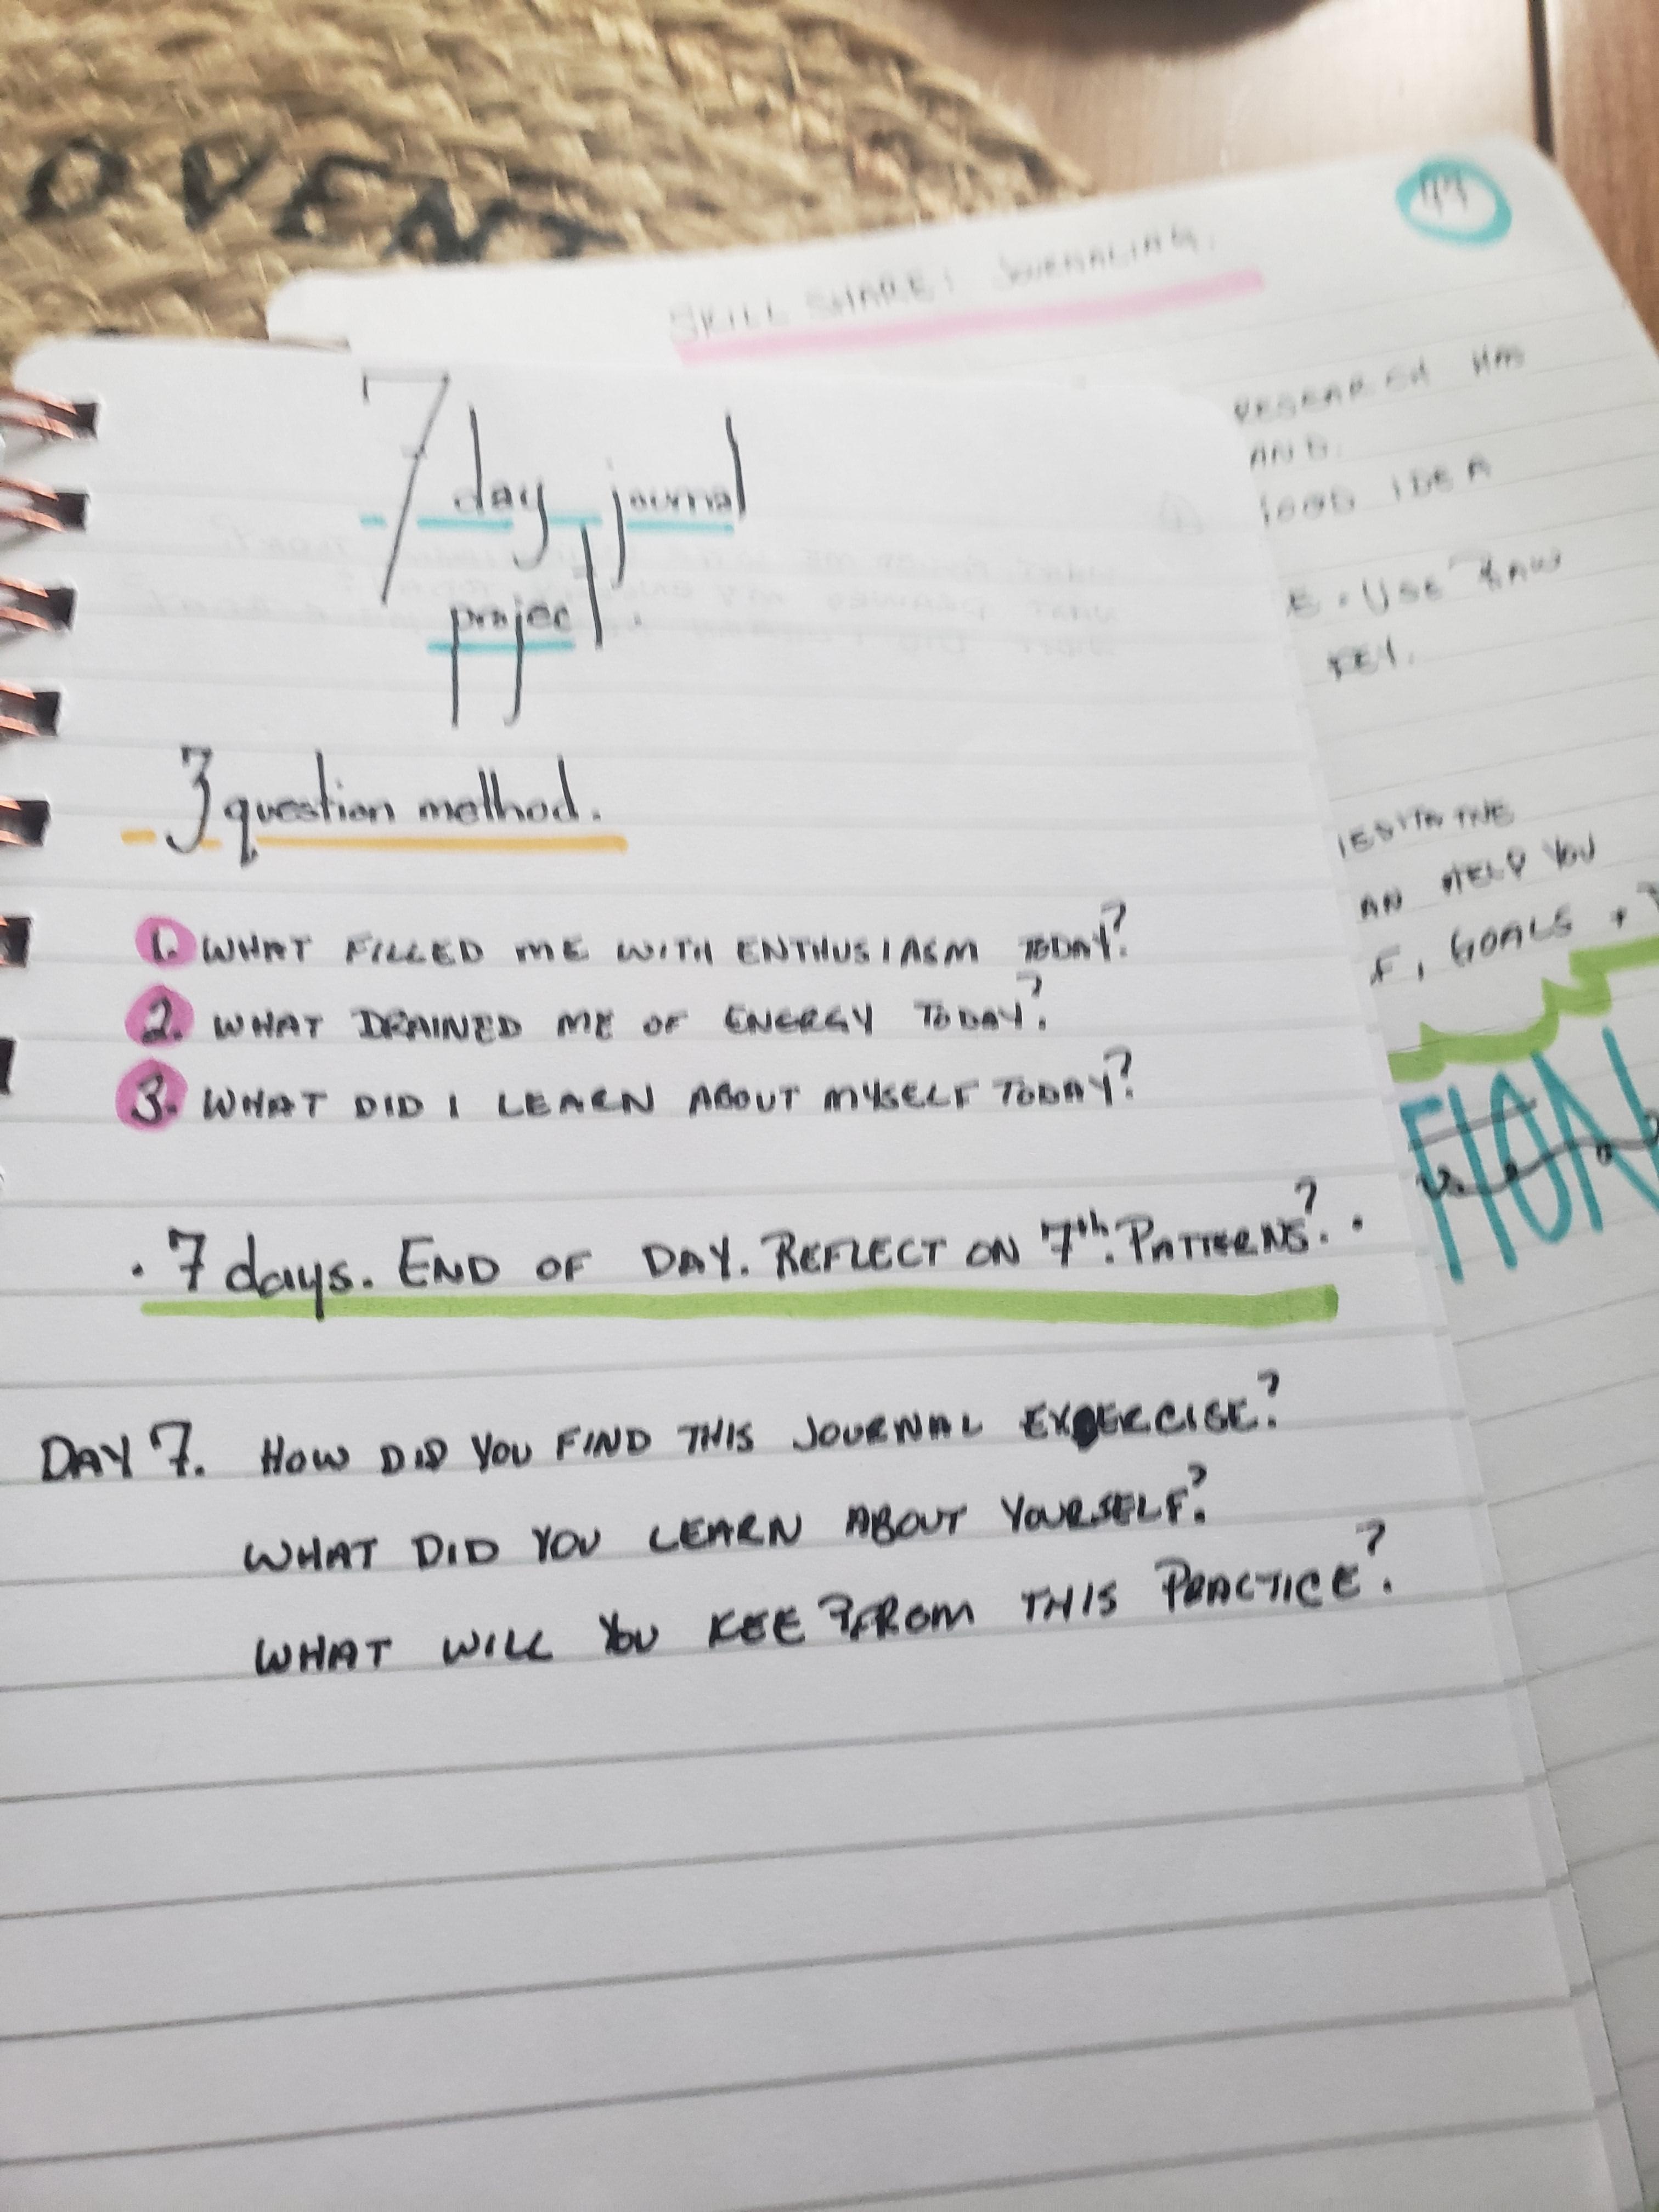 7 day journal
project.
3 question method.
1. WHAT FILLED ME WITH ENTHUSIASM TODAY?
2. WHAT DRAINED ME OF ENERGY TODAY?
3. WHAT DID I LEARN ABOUT MYSELF TODAY?
· 7 days. END OF DAY. REFLECT ON 7th. PATTERNS? ·
DAY 7. HOW DID YOU FIND THIS JOURNAL EXERCISE?
WHAT DID YOU LEARN ABOUT YOURSELF?
WHAT WILL YOU KEEP FROM THIS PRACTICE?
SKILL SHARE: JOURNALING.
RESEARCH HAS
AND
GOOD IDEA
E. USE RAW
KEY.
THE
AN HELP YOU
F, GOALS +
TION
OVEN